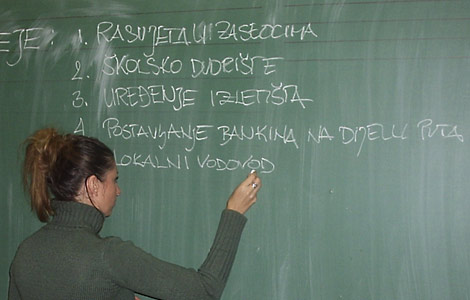 EJE: 1. RASVJETA U ZASEOCIMA
2. ŠKOLSKO DVORIŠTE
3. UREĐENJE IZLETIŠTA
4. POSTAVLJANJE BANKINA NA DIJELU PUTA
LOKALNI VODOVOD